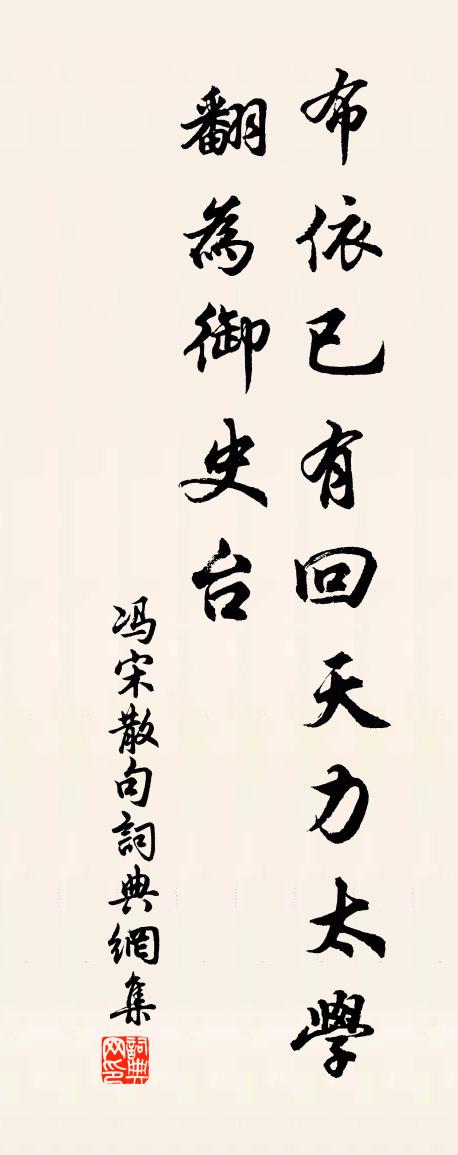 布依已有回天力太學
翻為御史台
冯宋散句詞典網集
詞典网印